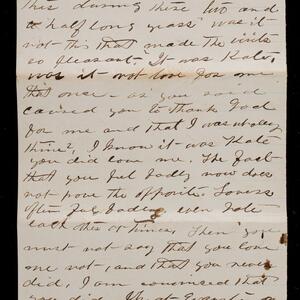 this during these two and
a half long years" was it
not this that made the visits
so pleasant. It was Kate,
was it not love for me
that once - as you said
caused you to thank God
for me and that I was
thine? I know it was Kate
you did love me. The fact
that you feel badly now does
not prove the opposite. Lovers
often feel badly, even hate
each other at times. Then you
must not say that you love
me not, and that you never
did. I am convinced that
you did